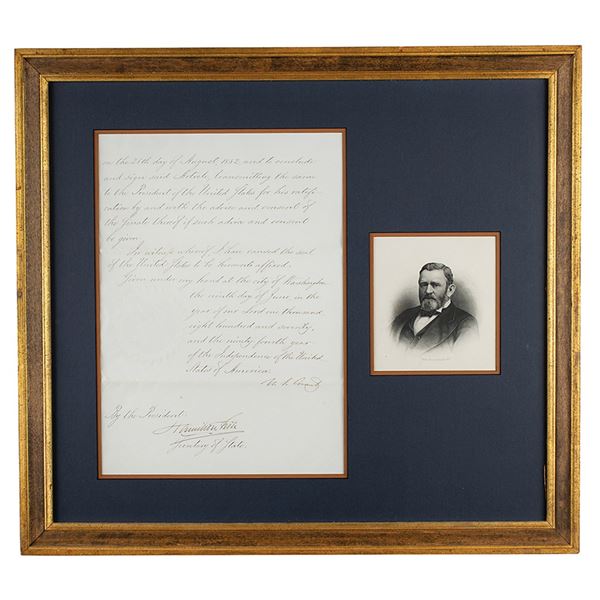 on the 26th day of August 1852, and to conclude
and sign said Article, transmitting the same
to the President of the United States for his ratifi-
cation by and with the advice and consent of
the Senate thereof if such advice and consent
be given.
In witness whereof I have caused the seal
of the United States to be hereunto affixed.
Given under my hand at the city of Washington
the ninth day of June in the
year of our Lord one thousand
eight hundred and seventy,
and the ninety fourth year
of the Independence of the United
States of America.
U. S. Grant
By the President:
Hamilton Fish
Secretary of State.